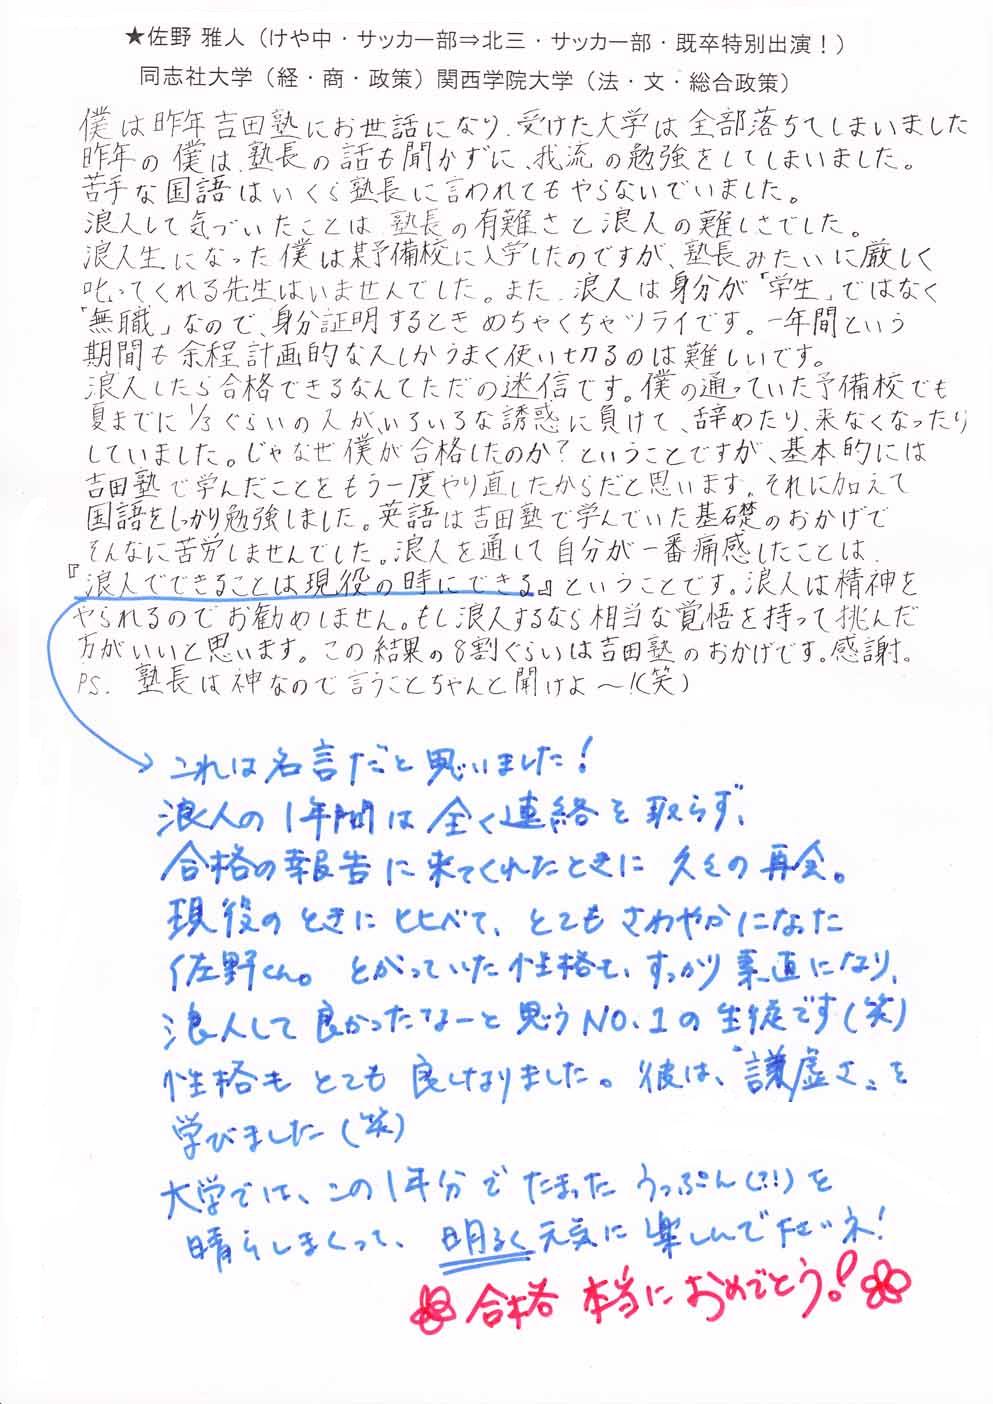 ★佐野 雅人（けや中・サッカー部⇒北三・サッカー部・既卒特別出演！）
同志社大学（経・商・政策）関西学院大学（法・文・総合政策）
僕は昨年吉田塾にお世話になり、受けた大学は全部落ちてしまいました
昨年の僕は、塾長の話も聞かずに、我流の勉強をしてしまいました。
苦手な国語はいくら塾長に言われてもやらないでいました。
浪人して気づいたことは塾長の有難さと浪人の難しさでした。
浪人生になった僕は某予備校に入学したのですが、塾長みたいに厳しく
叱ってくれる先生はいませんでした。また、浪人は身分が「学生」ではなく
「無職」なので、身分証明するときめちゃくちゃツライです。一年間という
期間も余程計画的な人しかうまく使い切るのは難しいです。
浪人したら合格できるなんてただの迷信です。僕の通っていた予備校でも
夏までに1/3ぐらいの人が、いろいろな誘惑に負けて、辞めたり、来なくなったり
していました。じゃなぜ僕が合格したのか？ということですが、基本的には
吉田塾で学んだことをもう一度やり直したからだと思います。それに加えて
国語をしっかり勉強しました。英語は吉田塾で学んでいた基礎のおかげで
そんなに苦労しませんでした。浪人を通して自分が一番痛感したことは
『浪人でできることは現役の時にできる』ということです。浪人は精神を
やられるのでお勧めしません。もし浪人するなら相当な覚悟を持って挑んだ
方がいいと思います。この結果の8割ぐらいは吉田塾のおかげです。感謝。
PS. 塾長は神なので言うことちゃんと聞けよ〜！(笑)
これは名言だと思いました！
浪人の1年間は全く連絡を取らず、
合格の報告に来てくれたときに久々の再会。
現役のときに比べて、とてもさわやかになった
佐野くん。とがっていた性格も、すっかり素直になり、
浪人して良かったなーと思うNO.1の生徒です(笑)
性格もとても良くなりました。彼は、"謙虚さ"を
学びました(笑)
大学では、この1年分でたまったうっぷん(?!)を
晴らしまくって、明るく元気に楽しんで下さいネ！
合格 本当におめでとう。！